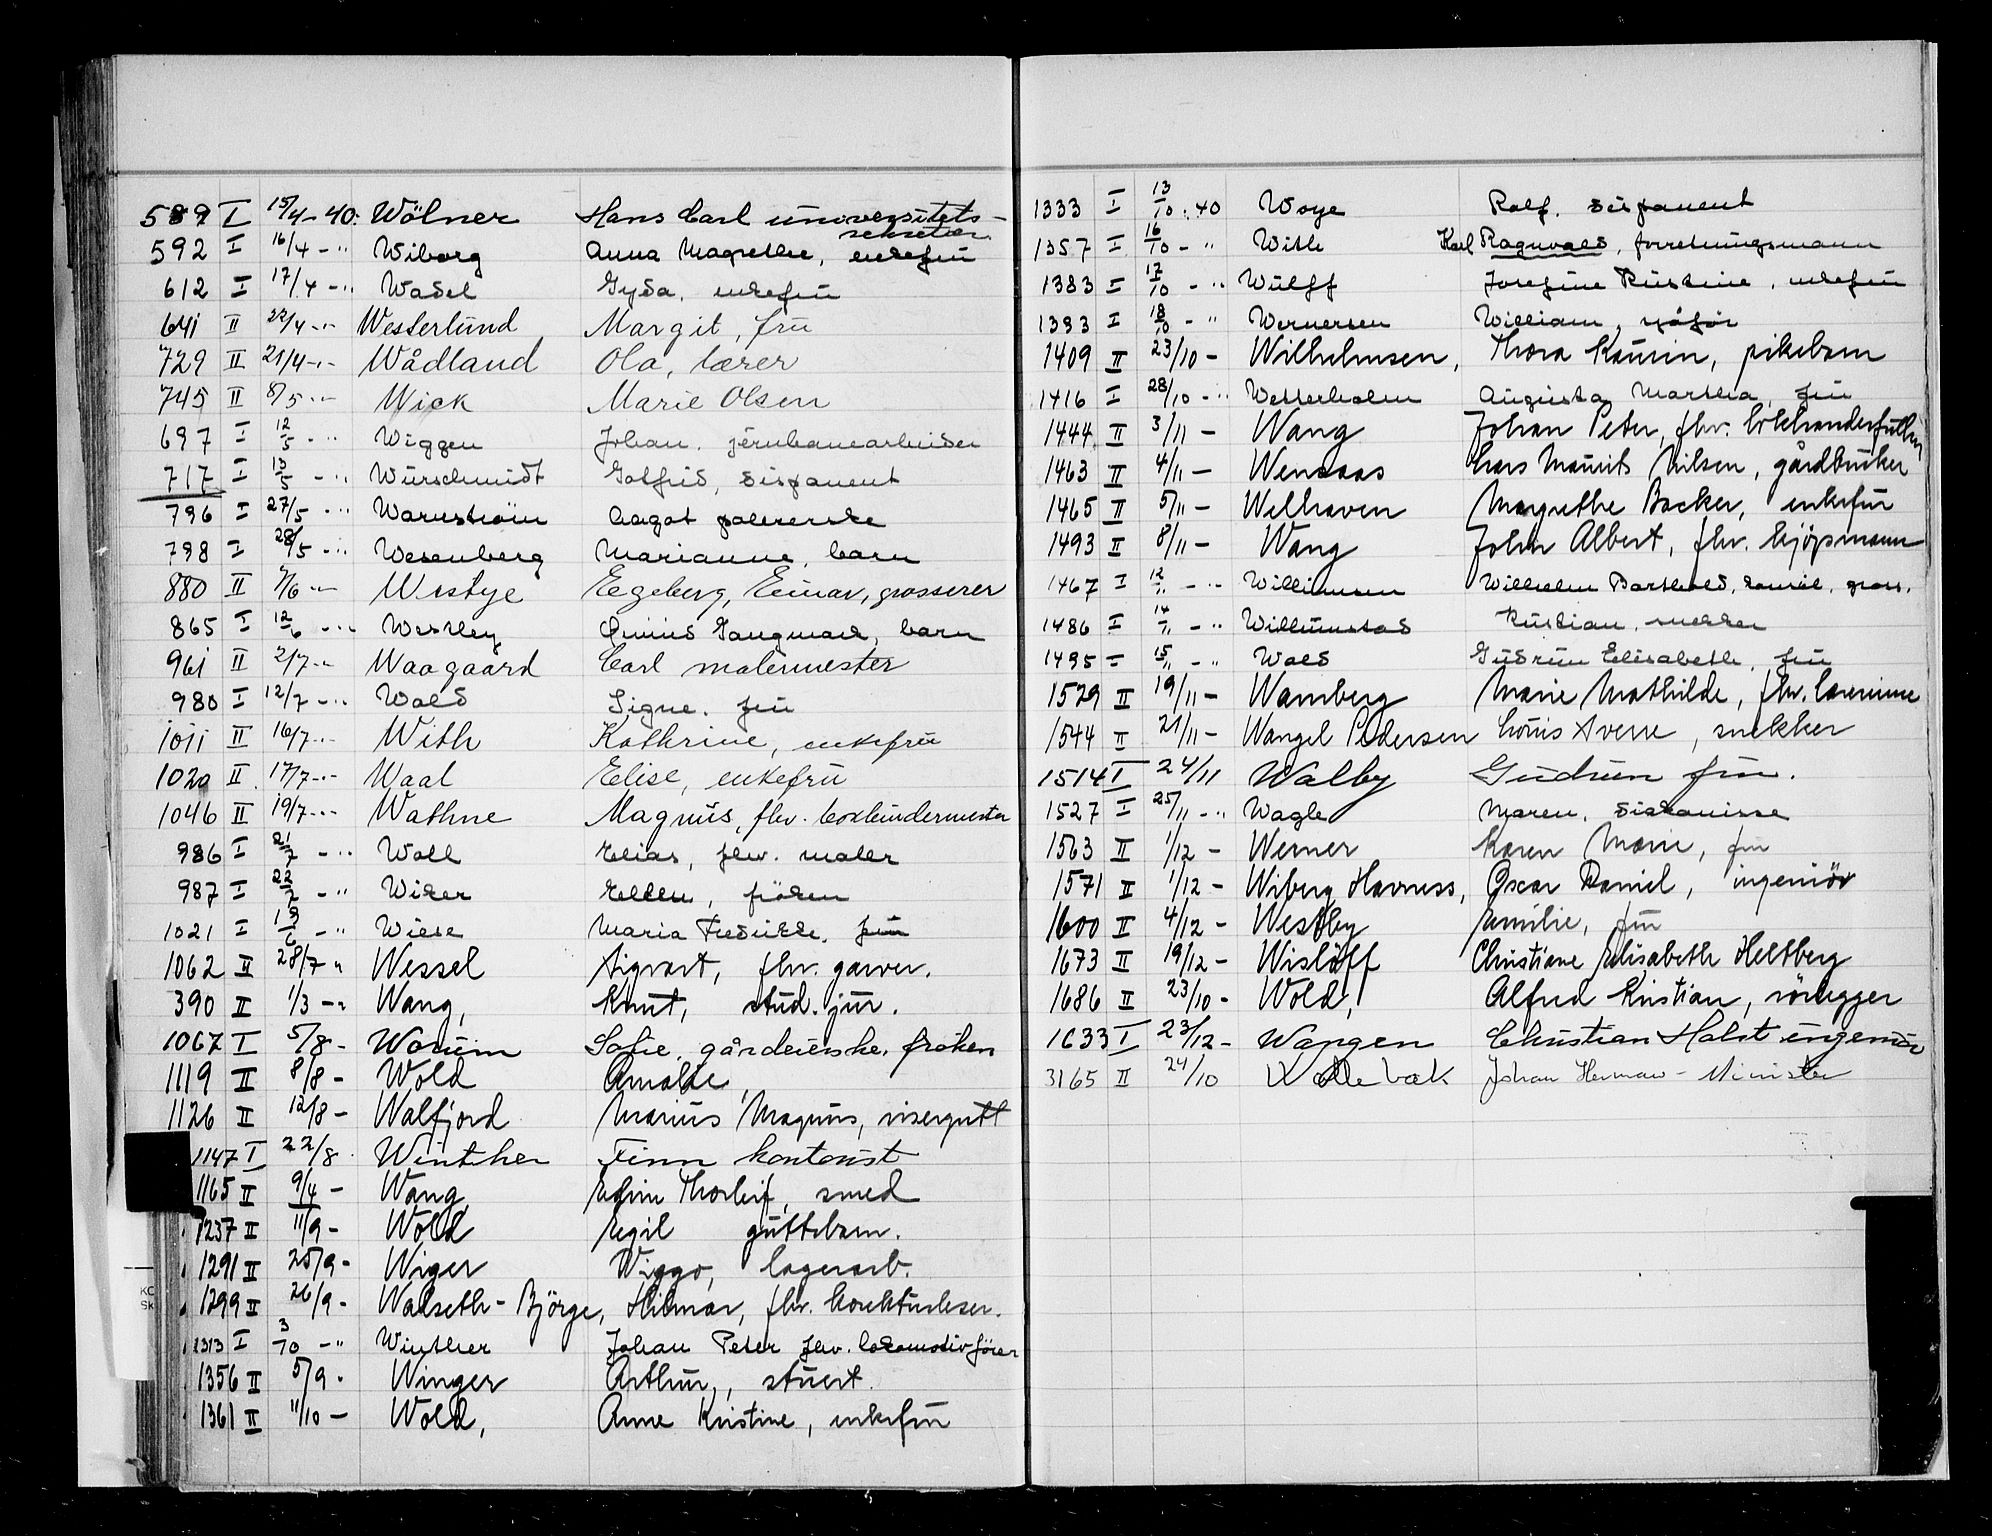 589 I 15/4-40: Wölner Hans Carl universitets-
sekretær
592 I 16/4 - " Wiborg Anna Magrethe, enkefrü
612 I 17/4 - " Wadel Gyda, enkefrü
641 II 22/4 - " Westerlünd Margit, frü
729 II 21/4 - " Wådland Ola, lærer
745 II 8/5 - " Wick Marie Olsen
697 I 12/5 - " Wiggen Johan, jernbanearbeider
717 I 13/5 - " Würschmidt Gotfrid, disponent
796 I 27/5 - " Warnström Aagot polererske
798 I 28/5 - " Wesenberg Marianne, barn
880 II 7/6 - " Westye Egeberg, Einar, grosserer
865 I 12/6 - " Westley Langmark, barn
961 II 2/7 - " Waagaard Carl malermester
980 I 12/7 - " Wold Signe, frü
1011 II 16/7 - " With Kathrine, enkefrü
1020 II 17/7 - " Waal Elise, enkefrü
1046 II 19/7 - " Wathne Magnüs, fhv. bokbindermester
986 I 21/7 - " Woll Elias, fhv. maler
987 I 22/7 - " Wiker Ellen, fröken
1021 I 19/6 - " Wiese Maria Fredrikke, frü
1062 II 28/7 " Wessel Sigvart, fhv. garver.
390 II 1/3 - " Wang, Knut, stüd. jür.
1067 I 5/8 - Worüm Sofie, gårdeierske, fröken
1119 II 8/8 - Wold Amalde
1126 II 12/8 - Walfjord Marius Magnüs, visergutt
1147 I 22/8 Winther Finn kontorist
1165 II 9/4 - Wang, Edvin Thorleif, smed
1237 II 11/9 - Wold Egil güttebarn.
1291 II 25/9 - Wiger Wiggo, lagerarb.
1299 II 26/9 - Walseth-Björge, Hilmar, fhv. korektürleser.
1313 I 3/10 - " Winther Johan Peter fhv. lokomotivförer
1356 II 5/9 - Winger Arthür, stüert
1361 II 11/10 - Wold, Anne Kristine, enkefrü
1333 I 13/10 - 40 Woye Rolf, disponent
1357 I 16/10 - " With Karl Ragnvald, forretningsmann
1383 I 17/10 - " Wülff Josefine Kristine, enkefrü
1393 I 18/10 - " Wernersen William, sjåför
1409 II 23/10 - Wilhelmsen, Thora Karin, pikebarn
1416 I 28/10 - " Wetterholm Augusta Marthea, frü
1444 II 3/11 - Wang Johan Peter, fhv.
1463 II 4/11 - Wensaas Lars Maurits Nilsen, gårdbrüker
1465 II 5/11 - Welhaven Magrethe Backer, enkefrü
1493 II 8/11 - Wang John Albert, fhv. kjöpmann
1467 I 12/11 - " Willumsen Wilhelm Barthold, gross.
1486 I 14/11 - " Willümstad Kristian, snekker
1495 I 15/11 - " Wold Güdrün Elisabeth, frü
1529 II 19/11 - Wamberg Marie Mathilde, fhv. lærerinne
1544 II 21/11 - Wangel Pedersen Louis Sverre, snekker
1514 I 24/11 Walby Gudrun frü.
1527 I 25/11 - " Wagle Maren, diakonisse
1563 II 1/12 - Werner Karen Marie, frü
1571 II 1/12 - Wiberg Havness, Oscar Daniel, ingeniör
1600 II 4/12 - Westby Emilie, frü
1673 II 19/12 - Wislöff Christiane Elisabeth Heltberg
1686 II 23/10 - Wold, Alfred Kristian, rörlegger
1633 I 23/12 - Wangen Christian Holst ingeniör
3165 II 24/10 Wollebæk Johan Herman - Minister